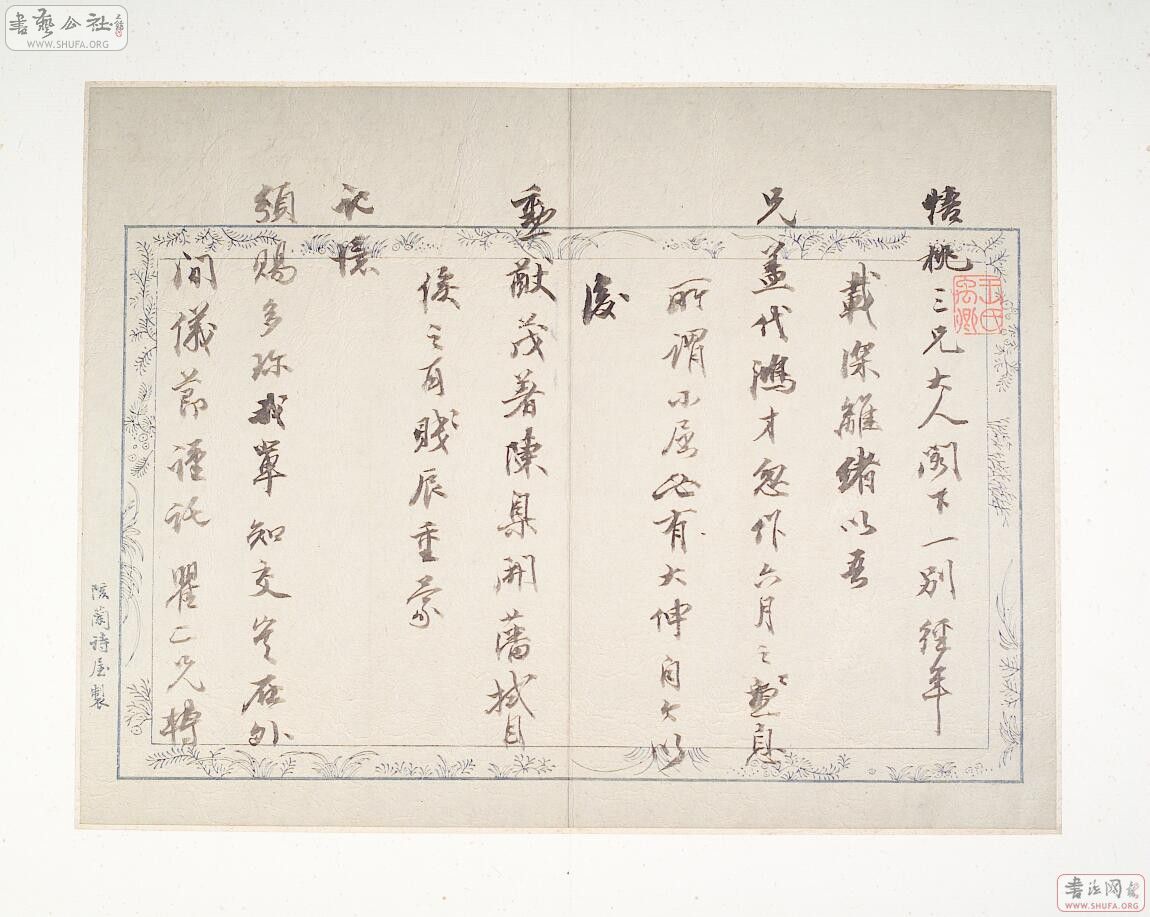 書藝公社
WWW.SHUFA.ORG
悟桃三兄大人閣下一別經年
載深離緒以吾
兄蓋代鴻才忽作六月之憩息
所謂小屈必有大伸自今以
後
勳猷茂著陳臬開藩拭目
俟之耳賤辰重蒙
記憶
頒賜多珍我輩知交豈在外
間儀節謹託瞿二兄轉
陔蘭詩屋製
王氏
書法网
WWW.SHUFA.ORG